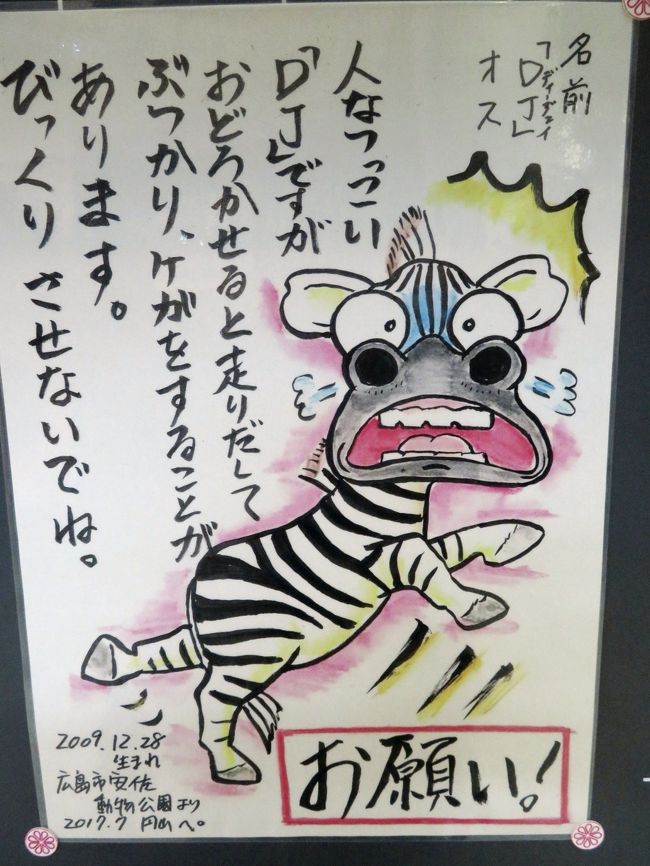 名前
「DJ」
ディージェイ
オス
人なつっこい
「DJ」ですが
おどろかせると走りだして
ぶつかり、ケガをすることが
あります。
びっくりさせないでね。
お願い!
2009.12.28
生まれ
広島市安佐
動物公園より
2017.7 円山へ。